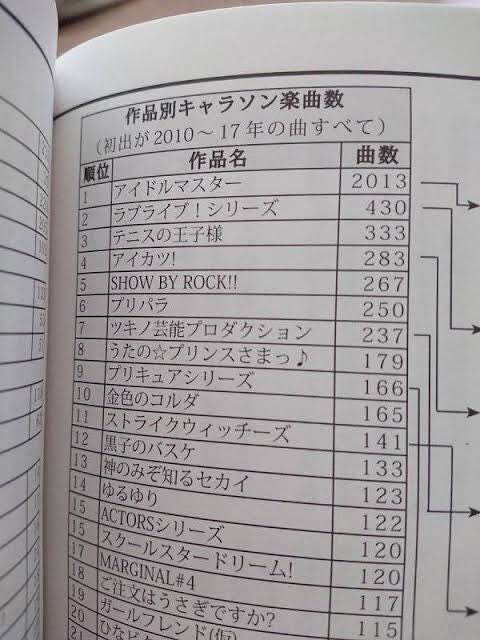 作品別キャラソン楽曲数
（初出が2010〜17年の曲すべて）
順位 作品名 曲数
1 アイドルマスター 2013
2 ラブライブ！シリーズ 430
3 テニスの王子様 333
4 アイカツ! 283
5 SHOW BY ROCK!! 267
6 プリパラ 250
7 ツキノ芸能プロダクション 237
8 うたの☆プリンスさまっ♪ 179
9 プリキュアシリーズ 166
10 金色のコルダ 165
11 ストライクウィッチーズ 141
12 黒子のバスケ 133
13 神のみぞ知るセカイ 123
14 ゆるゆり 122
15 ACTORSシリーズ 120
15 スクールスタードリーム! 120
17 MARGINAL#4 117
18 ご注文はうさぎですか? 115
19 ガールフレンド(仮)
20
21